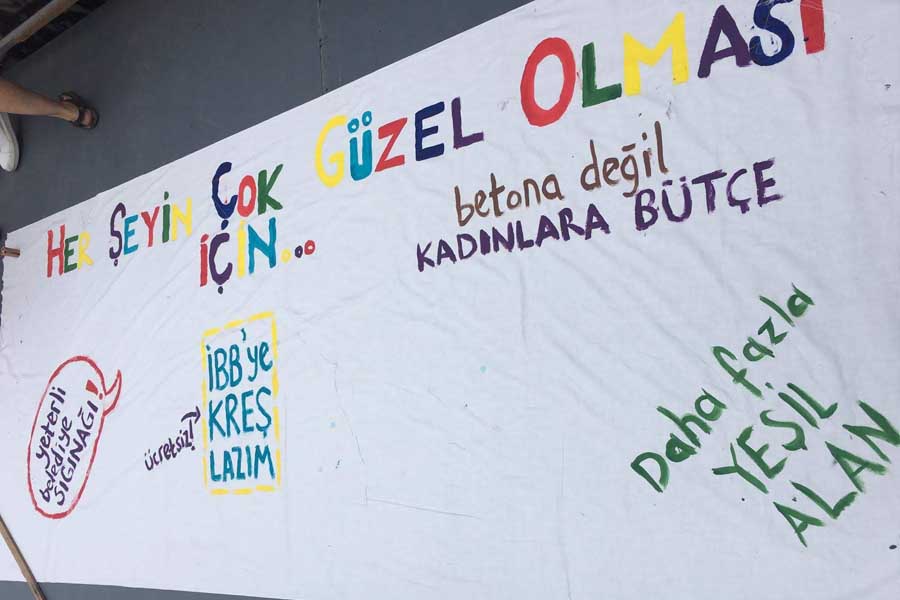 HER ŞEYİN ÇOK GÜZEL OLMASI
İÇİN...
betona değil
KADINLARA BÜTÇE
yeterli
belediye
SIĞINAĞI!
ücretsiz!
İBB'ye
KREŞ
LAZIM
Daha fazla
YEŞİL
ALAN